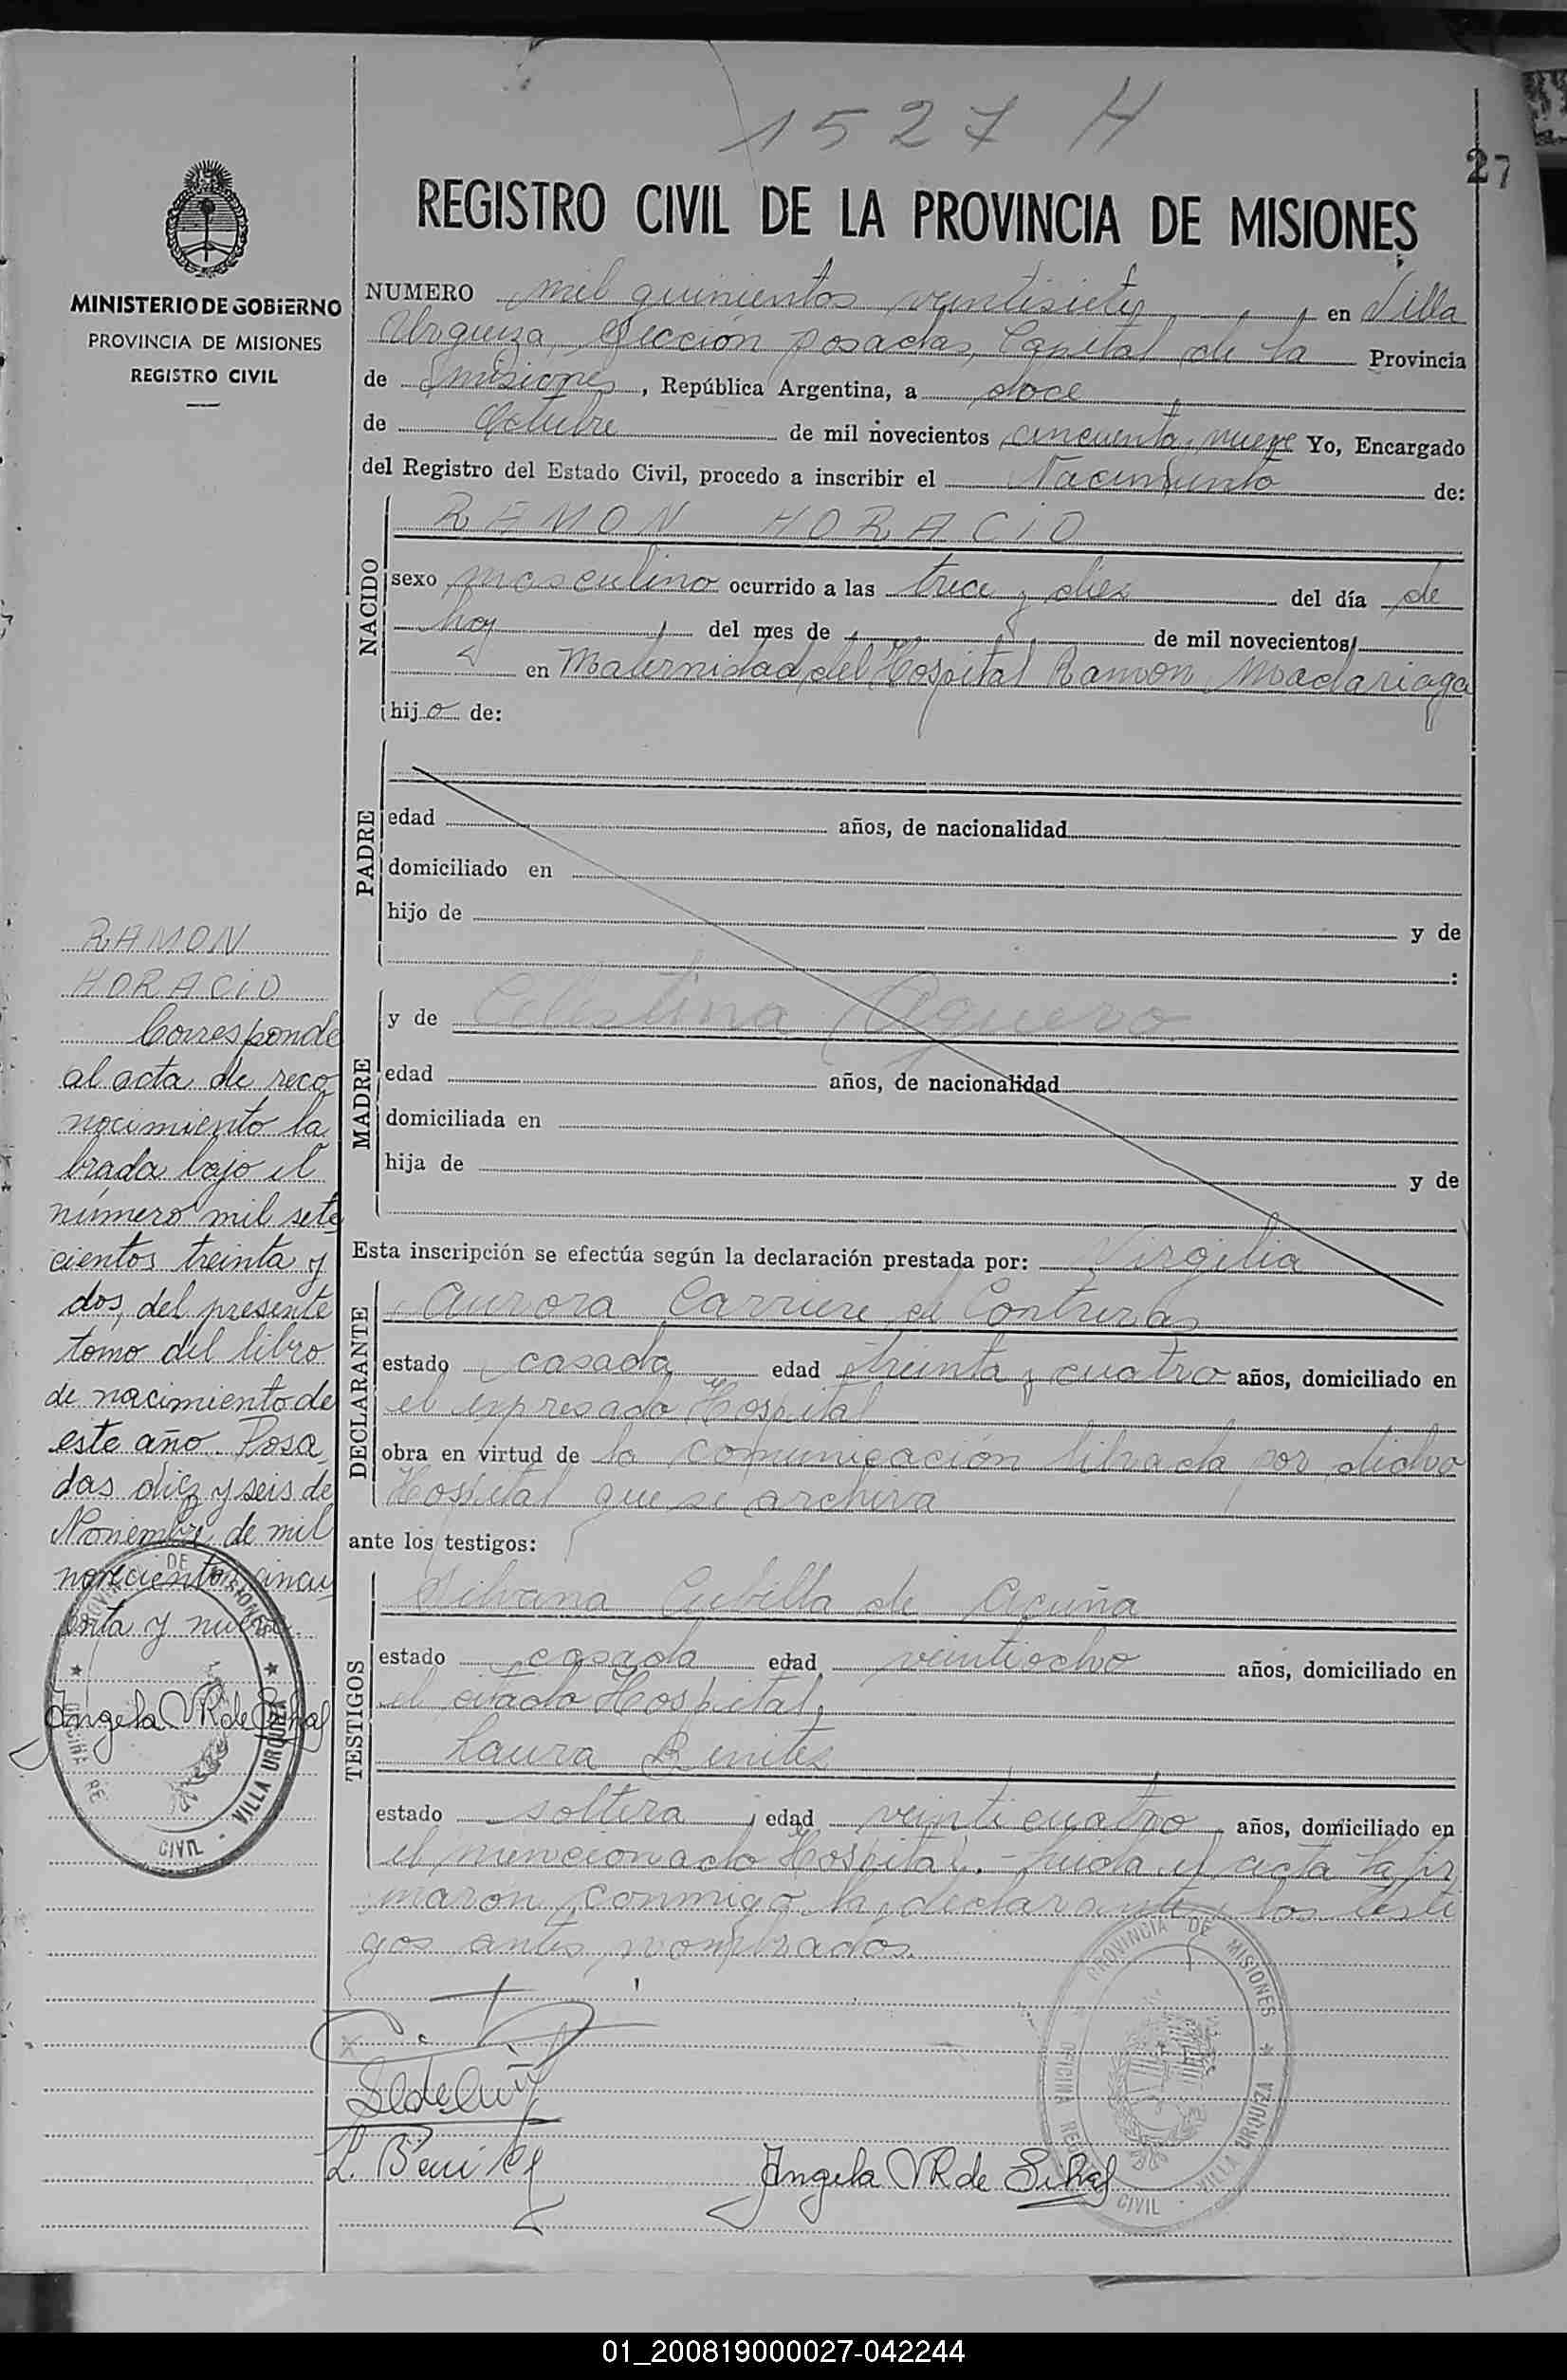 1527 H
27
REGISTRO CIVIL DE LA PROVINCIA DE MISIONES
MINISTERIO DE GOBIERNO
PROVINCIA DE MISIONES
REGISTRO CIVIL
NUMERO mil quinientos veintisiete en Villa
Urquiza, Sección Posadas, Capital de la Provincia
de Misiones, República Argentina, a doce
de Octubre de mil novecientos cincuenta y nueve Yo, Encargado
del Registro del Estado Civil, procedo a inscribir el Nacimiento de:
NACIDO
RAMON HORACIO
sexo masculino ocurrido a las trece y diez del día de
hoy del mes de de mil novecientos
en Maternidad del Hospital Ramon Madariaga
hijo de:
PADRE
edad años, de nacionalidad
domiciliado en
hijo de y de
:
MADRE
y de Celestina Aguero
edad años, de nacionalidad
domiciliada en
hija de y de
Esta inscripción se efectúa según la declaración prestada por: Virgilia
DECLARANTE
Aurora Carriere de Contreras
estado casada edad treinta y cuatro años, domiciliado en
el expresado Hospital
obra en virtud de la comunicación librada por dicho
Hospital que se archiva
ante los testigos:
TESTIGOS
Silvana Cubilla de Acuña
estado casada edad veintiocho años, domiciliado en
el citado Hospital,
Laura Benitez
estado soltera, edad veinticuatro años, domiciliado en
el mencionado Hospital.- Leida el acta la fir
maron conmigo la declarante y los testi
gos antes nombrados.
L. Benitez
Angela VR de
PROVINCIA DE MISIONES * OFICINA REG CIVIL - VILLA URQUIZA
RAMON
HORACIO
Corresponde
al acta de reco
nocimiento la
brada bajo el
número mil sete
cientos treinta y
dos, del presente
tomo del libro
de nacimiento de
este año. Posa
das diez y seis de
Noviembre de mil
novecientos cincu
enta y nueve.
Angela VR de
DE MISIONES * OFICINA DE CIVIL - VILLA URQUIZA
01_200819000027-042244